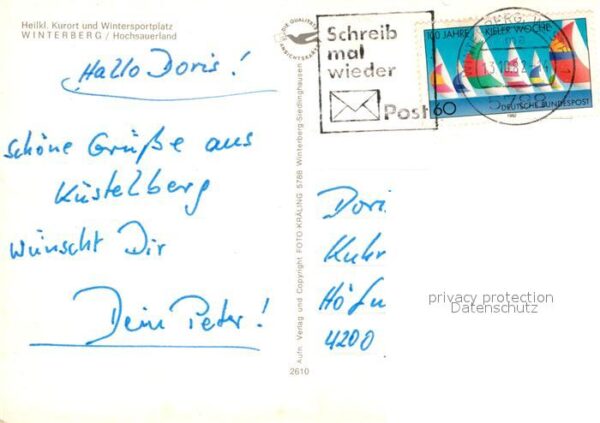 Heilkl. Kurort und Wintersportplatz
WINTERBERG / Hochsauerland
Hallo Doris!
schöne Grüße aus
Küstelberg
wünscht Dir
Dein Peter!
DIE QUALITÄTS
ANSICHTSKARTE
Aufn. Verlag und Copyright FOTO-KRÄLING 5788 Winterberg-Siedlinghausen
2610
Schreib
mal
wieder
Post
100 JAHRE KIELER WOCHE
13.10.82
5788
60
DEUTSCHE BUNDESPOST
1982
Dori
Kuhr
4200
privacy protection
Datenschutz